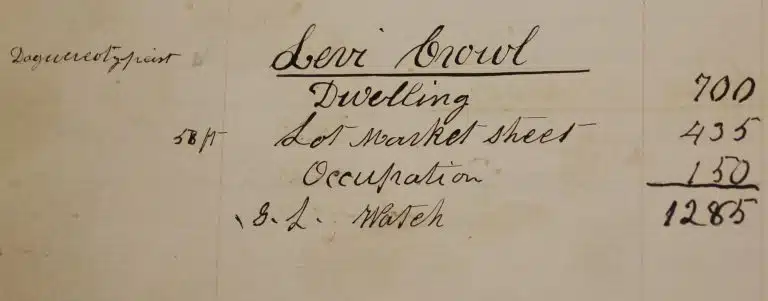 Daguereotypeist Levi Crowl
Dwelling 700
58 ft Lot Market Street 435
Occupation 150
G. L. Watch 1285